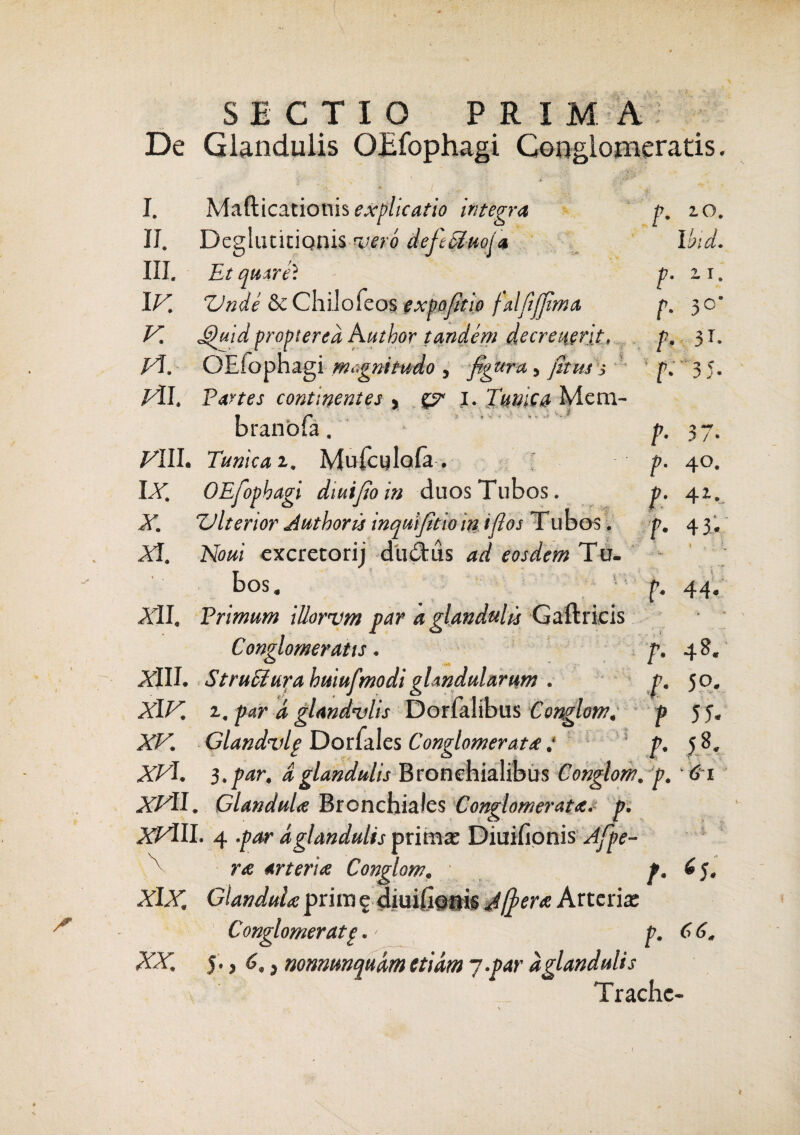 SECTIO PRIMA
De Glandulis OEſophagi Conglomeratis.
I. Maſticationis explicatio integra p. 20.
II. Deglutitionis verò defectuoſa Ibid.
III. Et quarè? p. 21.
IV. Vndè & Chiloſeos expoſitio falſiſſima p. 30.
V. Quid proptereà Author tandèm decreuerit. p. 31.
VI. OEſophagi magnitudo, figura, ſitus; p. 35.
VII. Partes continentes, & 1. Tunica Mem-
branoſa. p. 37.
VIII. Tunica 2. Muſculoſa. p. 40.
IX. OEſophagi diuiſio in duos Tubos. p. 42.
X. Vlterior Authoris inquiſitio in iſtos Tubos. p. 43.
XI. Noui excretorij ductus ad eosdem Tu-
bos. p. 44.
XII. Primum illorvm par à glandulis Gaſtricis
Conglomeratis. p. 48.
XIII. Structura huiuſmodi glandularum. p. 50.
XIV. 2. par à glandvlis Dorſalibus Conglom. p 55.
XV. Glandvlę Dorſales Conglomeratæ; p. 58.
XVI. 3. par. à glandulis Bronchialibus Conglom. p. 61
XVII. Glandulæ Bronchiales Conglomeratæ. p.
XVIII. 4. par à glandulis primæ Diuiſionis Aſpe-
ræ arteriæ Conglom. p. 65.
XIX. Glandulæ primę diuiſionis Aſperæ Arteriæ
Conglomeratę. p. 66.
XX. 5., 6., nonnunquàm etiàm 7. par à glandulis
Trache-